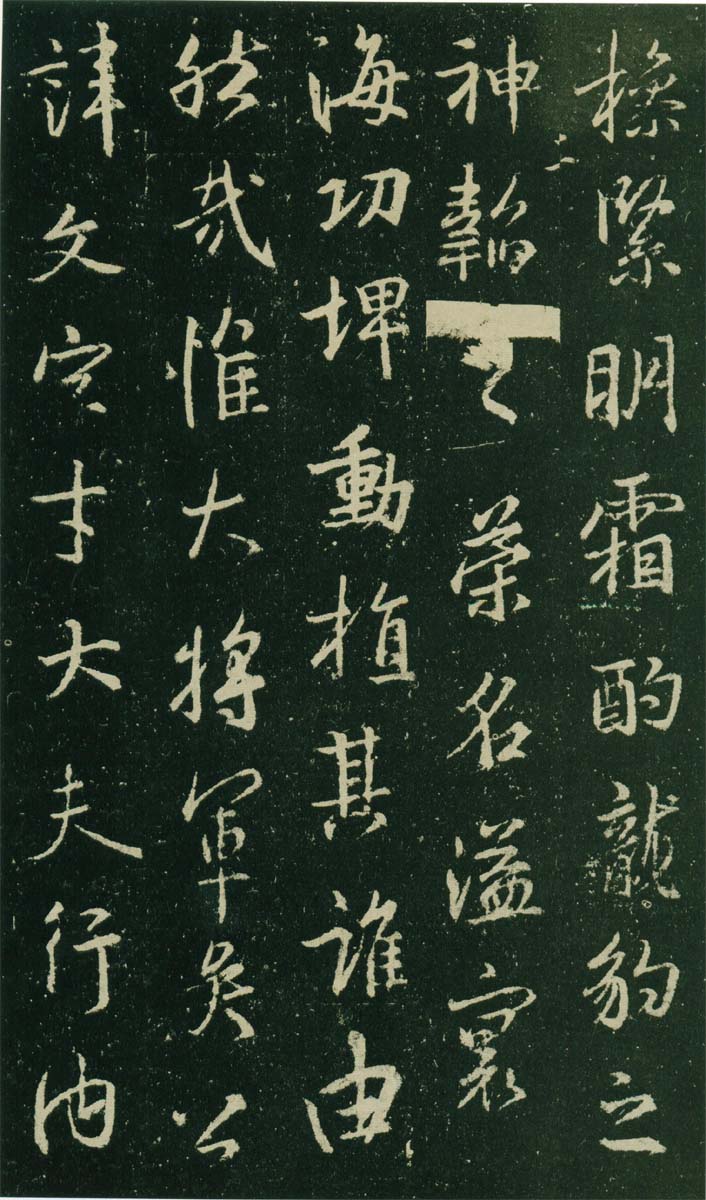 操緊明霜酌龍豹之
神韜之榮名溢寰
海功埤動植其誰由
然哉惟大將軍矣公
諱文字才大夫行內